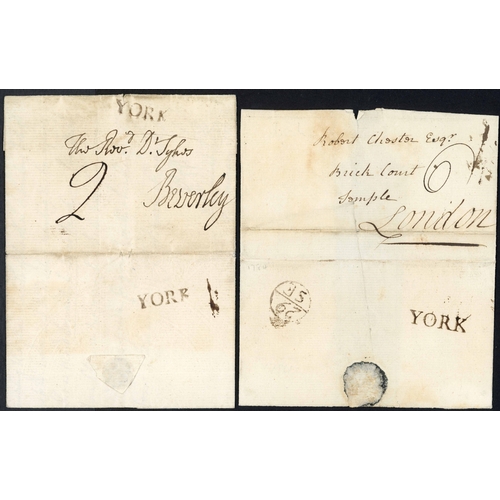 YORK
The Revd. Dr. Sykes
2 Beverley
YORK
Robert Chester Esqr.
Brick Court
6
Temple
London
SE
29
YORK